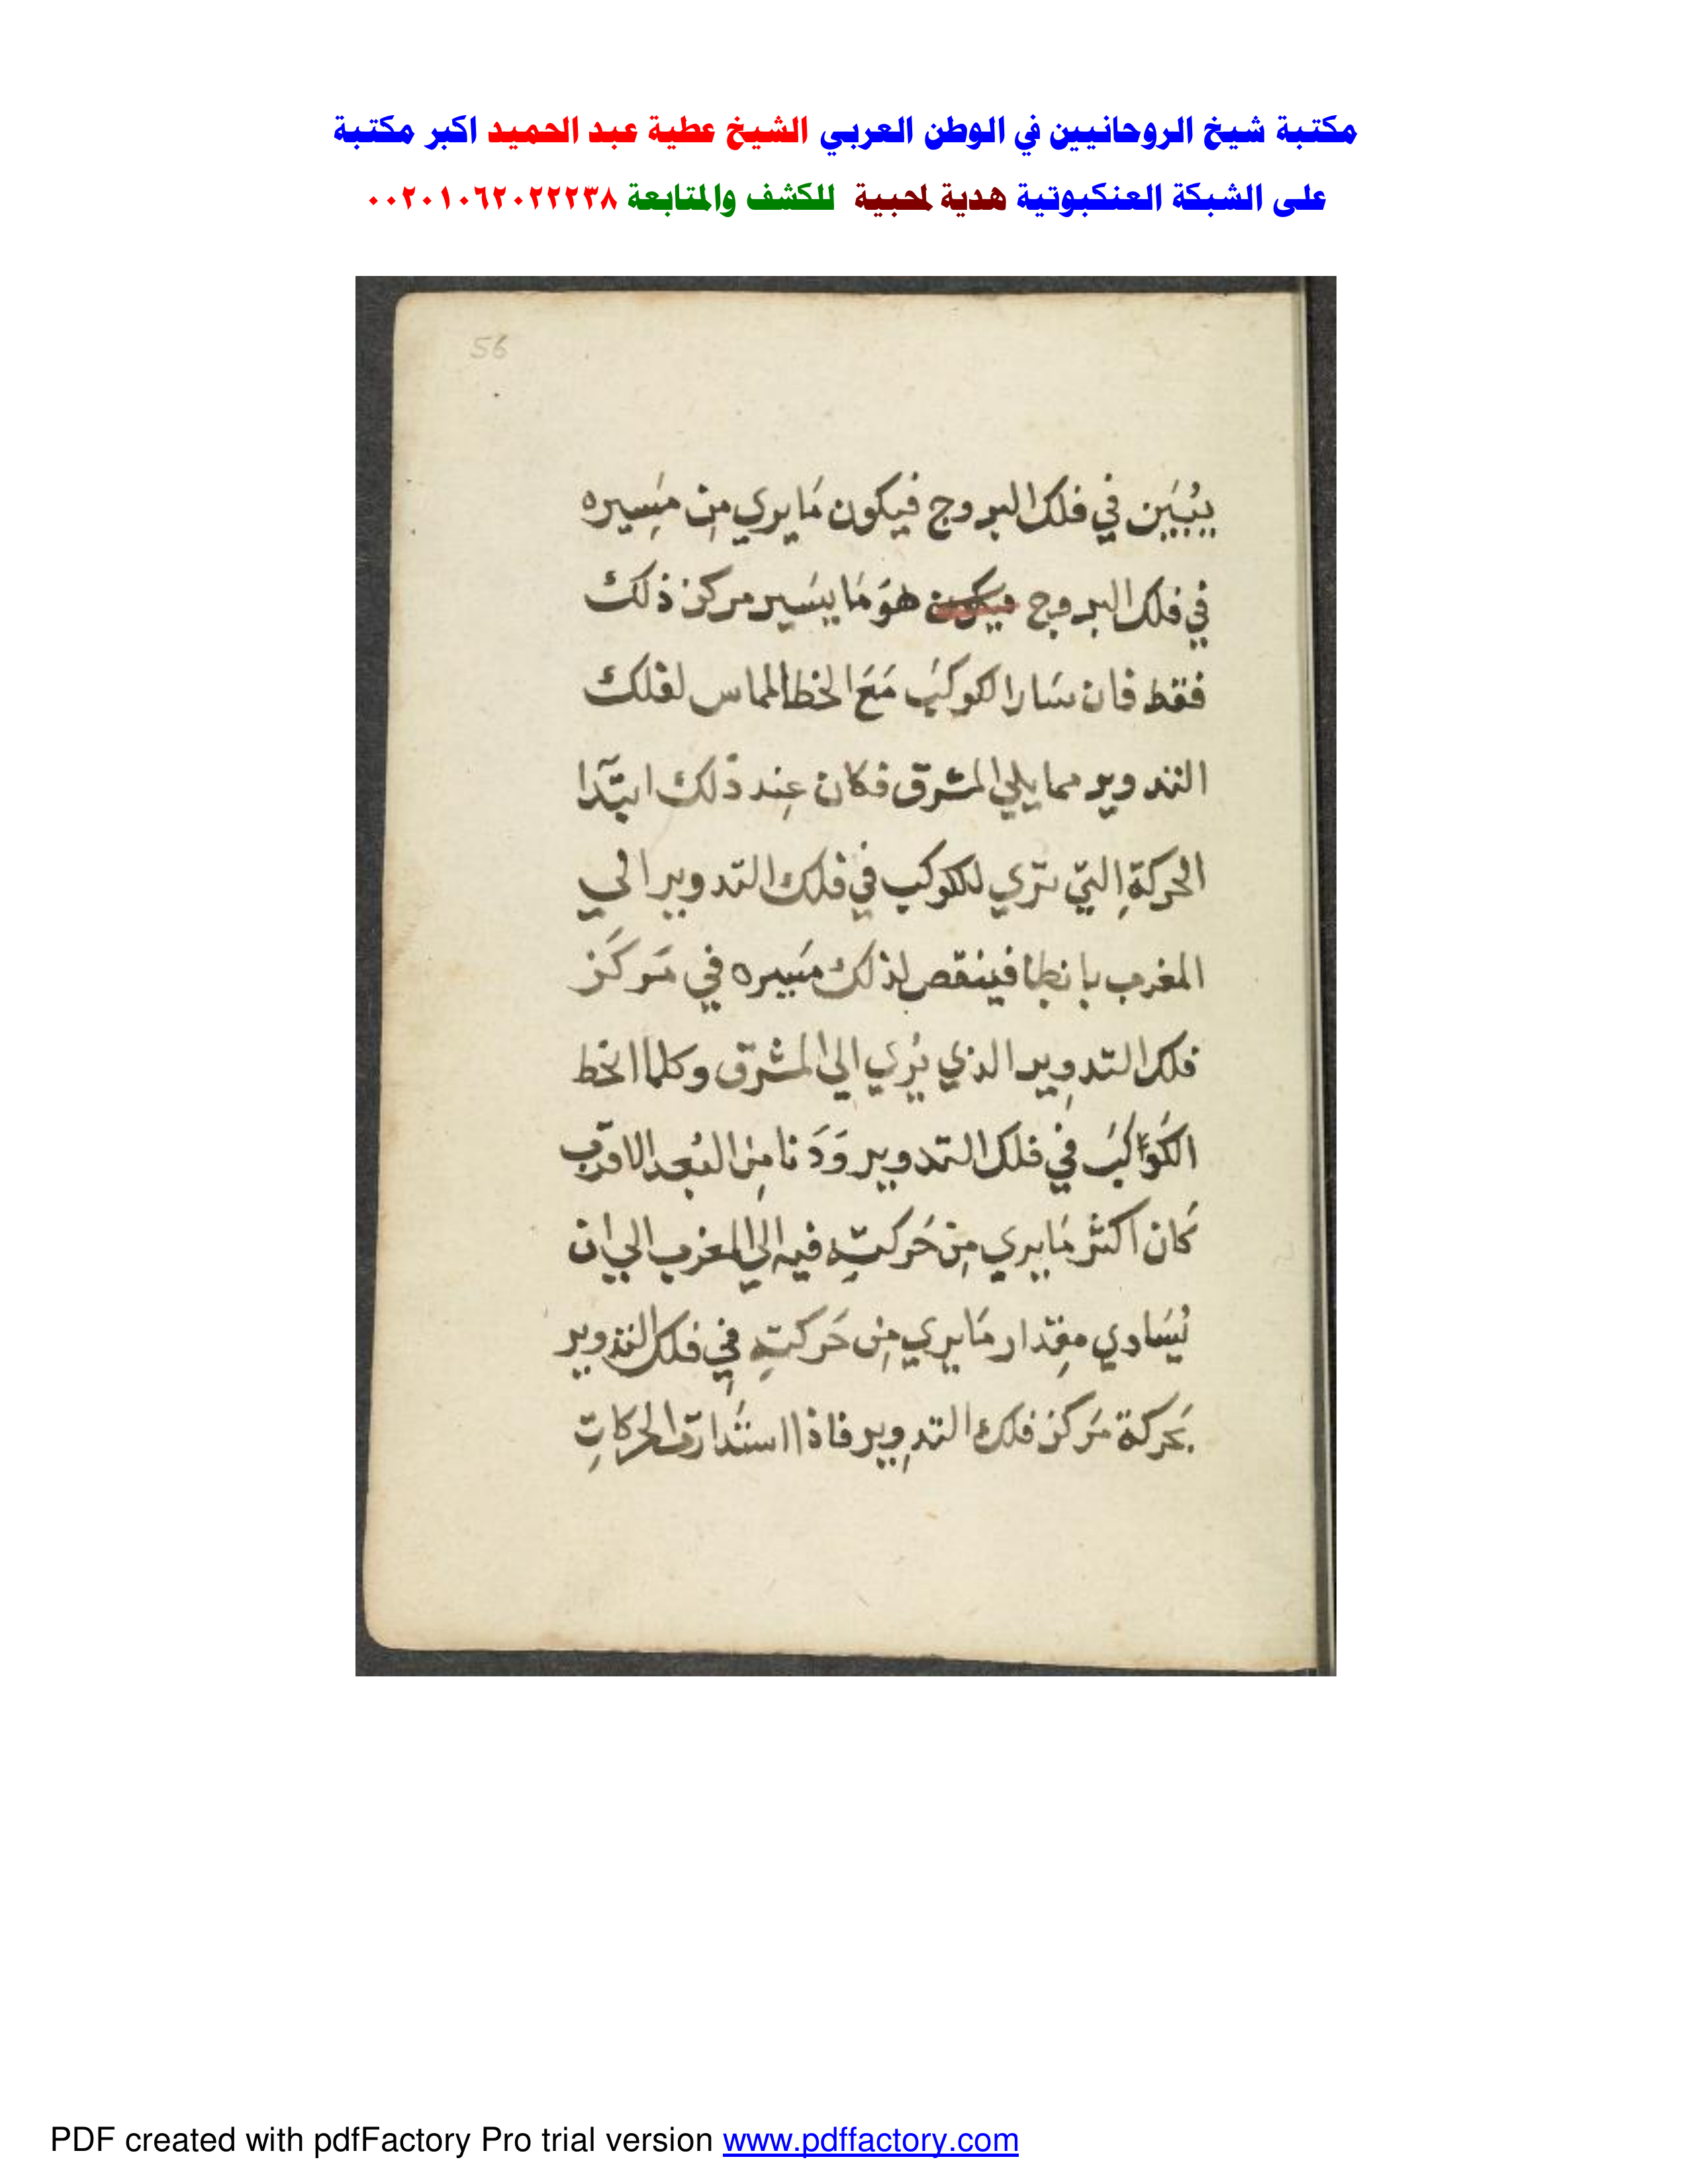 مكتبة شيخ الروحانيين في الوطن العربي الشيخ عطية عبد الحميد اكبر مكتبة
على الشبكة العنكبوتية هدية لمحبية للكشف والمتابعة ٠٠٢٠١٠٦٢٠٢٢٢٣٨
56
في فلك البروج فيكون مَا يري مِن مَسِيره
في فلك البروج فيكون هوَ مَا يسَير مركز ذلك
فقط فان سَار الكوكبَ مَعَ الخط المماس لفلك
التدوير مما يلي المشرق فكان عِند ذلك ابتدا
الحركةِ التيّ ترَي للكوكب في فلك التدوير الي
المغرب بانطا فينقص لذلك مَسيره في مَركَز
فلك التدوِير الذي يُرَي الي المشرق وكلما انحط
الكَوَاكبَ في فلك التدوير وَدَنا مِن البُعد الاقرَب
كَان اكثر مَا يري مِن حَركتِهِ فيه الي المغرب الي ان
يُسَاوي مِقدار مَا يري مِن حَركتِهِ فِي فلك التدوير
بحَركة مَركز فلك التدوِير فاذا استدارت الحركاتِ
PDF created with pdfFactory Pro trial version www.pdffactory.com